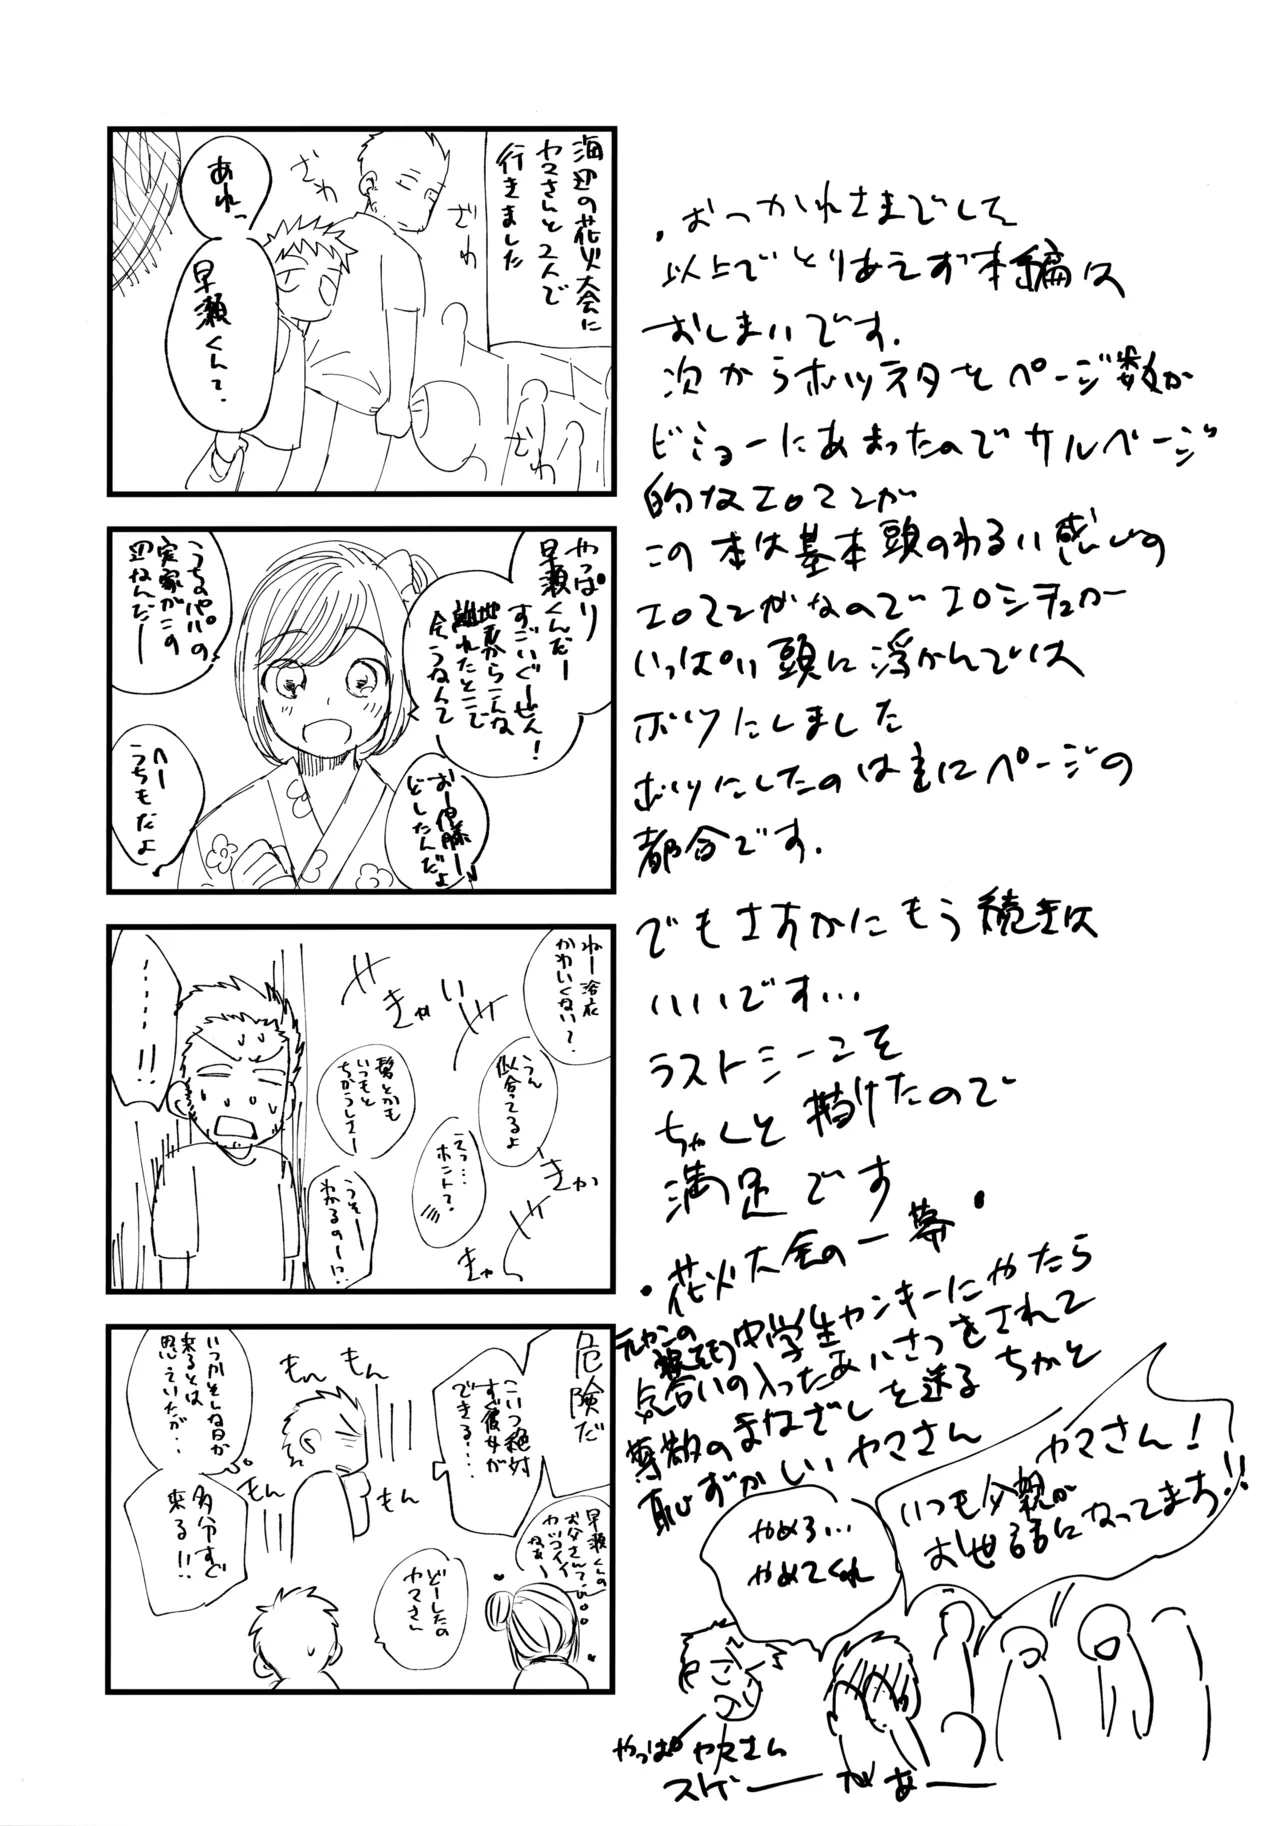 海辺の花火大会に
ヤマさんと2人で
行きました
ざわ
ざわ
ざわ
あれっ
早瀬くんて。
やっぱり
早瀬くんだー
すごいぐーぜん!
地元からこんな
離れたとこで
会うなんて
おー伊藤ー
どしたんだよ
うちのパパの
実家がこの
辺なんだー
へー
うちもだよ
ねー浴衣
かわいくない?
うん
似合ってるよ
えっ…
ホント?
髪とかも
いつもと
ちがうしさー
うそー
わかるのー!?
きゃい
きゃ
きゃ
……!!
危険だ
こいつ絶対
すぐ彼女が
できる…
もん
もん
もん
もん
いつかそんな日が
来るとは
思っていたが…
多分すぐ
来る!!
早瀬くんの
お父さんてカッコイイ
なぁー
どーしたの
ヤマさん
・おつかれさまでした
以上でとりあえず本編は
おしまいです.
次からボツネタをページ数が
ビミョーにあまったのでサルベージ
的なエロマンガ
この本は基本頭のわるい感じの
エロマンガなのでエロシチュが
いっぱい頭に浮かんでは
ボツにしました
ボツにしたのは主にページの
都合です.
でもさすがにもう続きは
いいです…
ラストシーンを
ちゃんと描けたので
満足です
・花火大会の一幕・
元ヤンの
中学生ヤンキーにやたら
気合いの入ったあいさつをされて
尊敬のまなざしを送るちかと
恥ずかしいヤマさん
ヤマさん!
いつも父親が
お世話になってます!!
やめろ…
やめてくれ
やっぱヤマさん
スゲーがあー